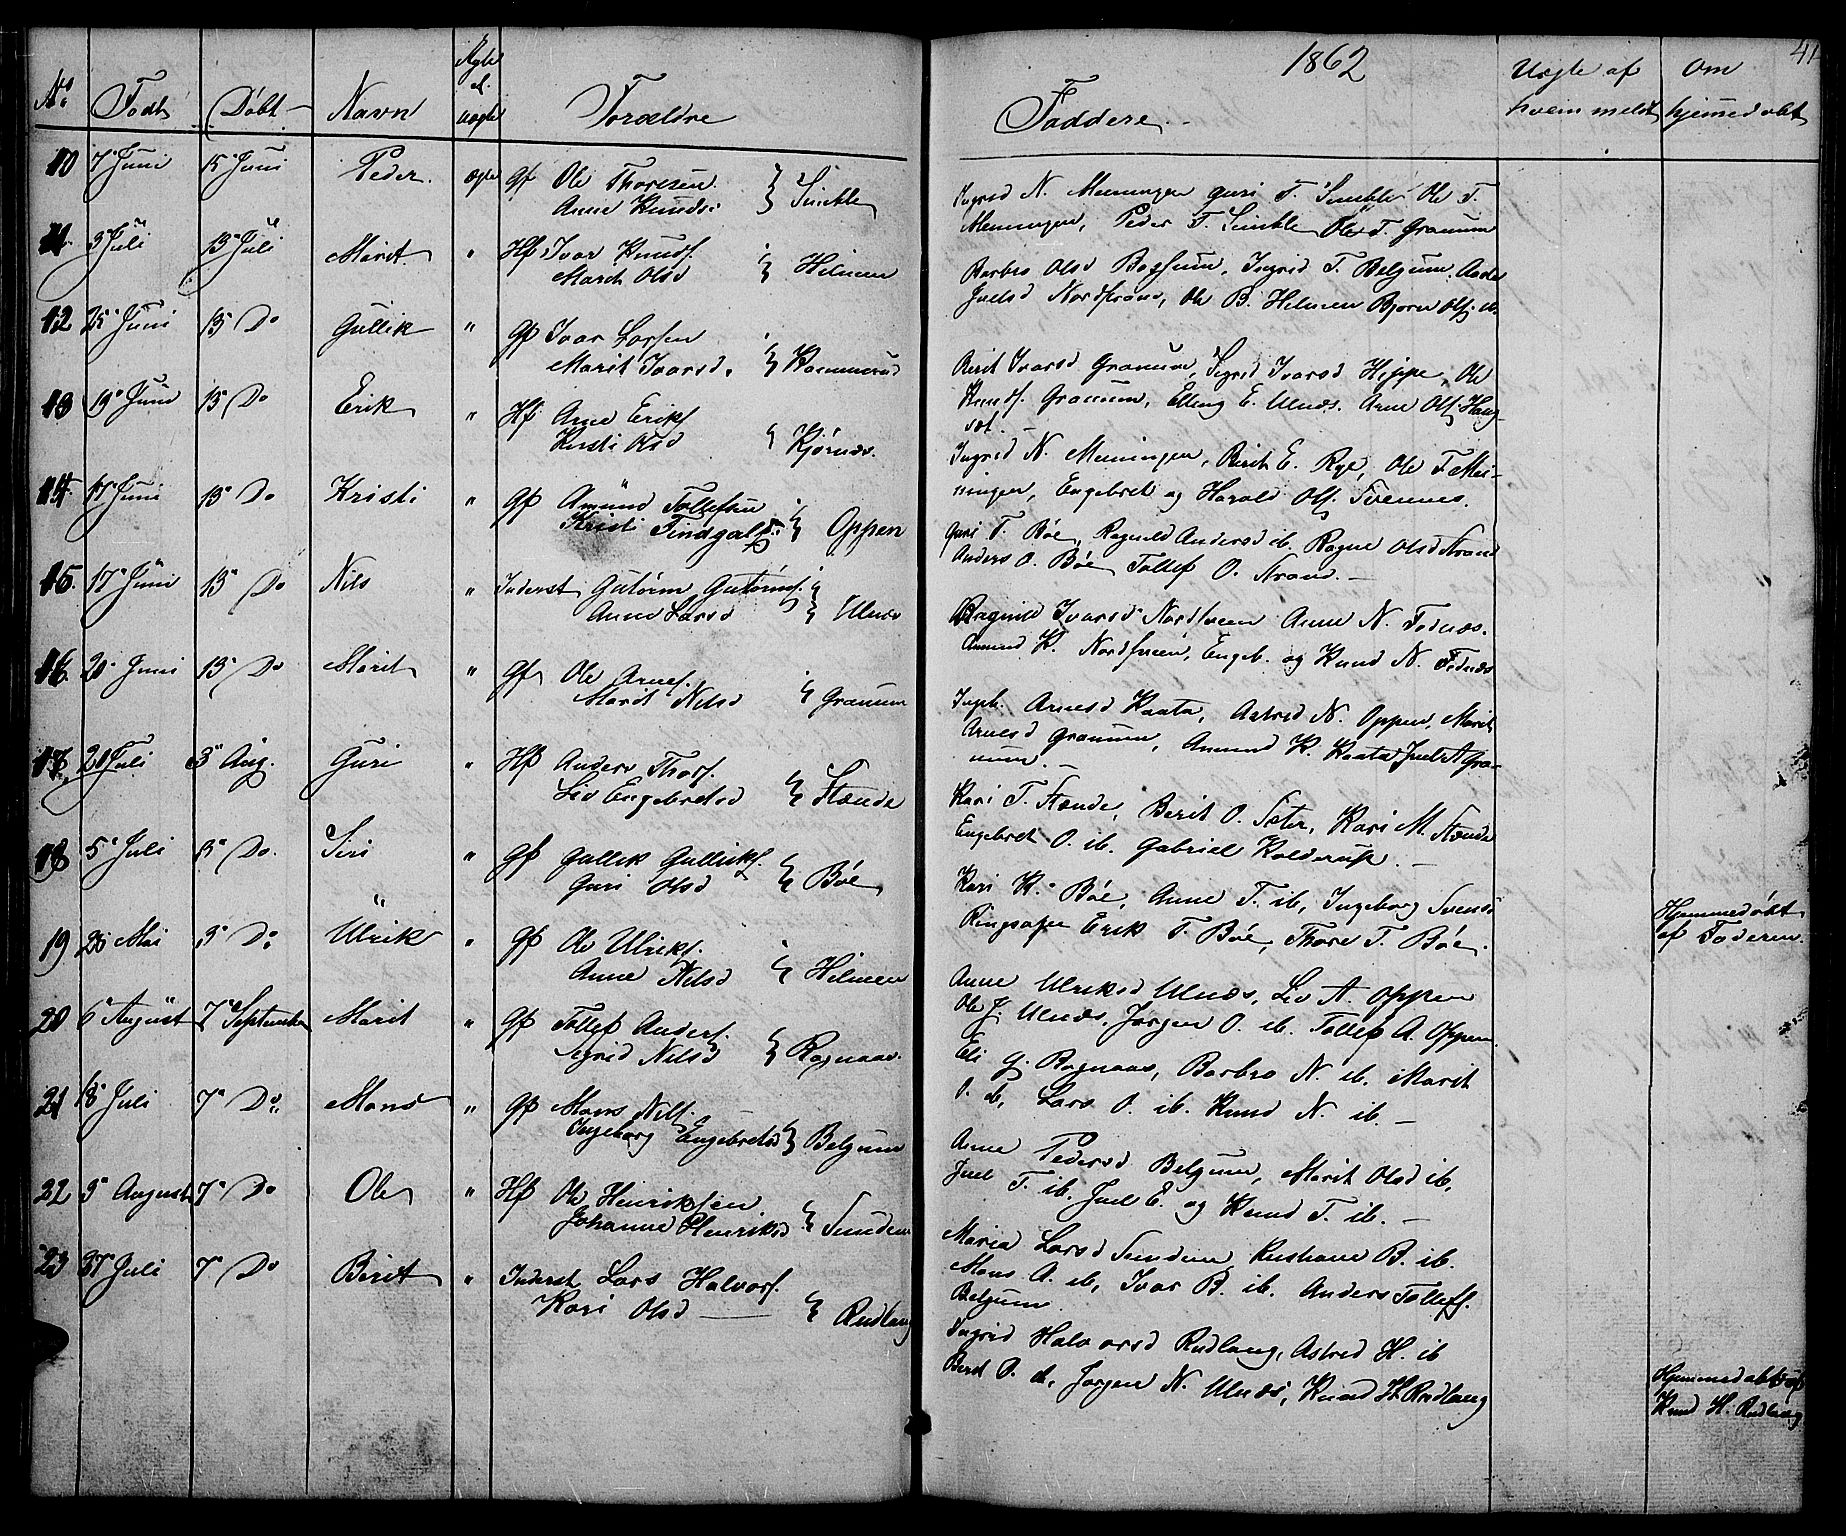 1862
41
No Født Døbt Navn Ægte el. uægte Forældre Faddere. Uægte af hvem meldt Om hjemmedøbt
10 7 Juni 15 Juni Peder. ægte Gf Ole Thoresen
Anne Knuds: } Simble
Ingred N. Menningen guri T. Simble Ole T.
Menningen, Peder T. Simble Ole T. Granum
11 3 Juli 13 Juli Marit " Hf Ivar Knuds.
Marit Olsd } Hilmen
Barbro Olsd Bagsum, Ingrid T. Belgum
Juelsd Nordstrand, Ole B. Helmen Bjørn Ols. ib.
12 25 Juni 13 Do Gullik " Gf Ivar Larsen
Marit Ivarsd.
Berit Ivarsd Granum, Sigrid Ivarsd Hippe, Ole
Knuds. Granum, Elling E. Ulnæs. Arne Ols. Haug-
sæt.
13 19 Juni 13 Do Erik " Hf Arne Eriks.
Kersti Olsd } Kjørnæs.
Ingrid N. Menningen, Berit E. Rye, Ole T Men-
ningen, Engebret og Harald Ols. Svennes.
14. 11 Juni 13 Do Kristi " Gf Amund Tollefsen
Kristi Findgals } Oppen
guri T. Bøe, Ragnild Andersd ib. Ragne Olsd Strand
Anders O. Bøe Tollef O. Strand.
15. 17 Juni 13 Do Nils " Inderst Guttorm Guttorms.
Anne Larsd } Ulnæs
Ragnild Ivarsd Nordsveen Anne N. Fodnæs.
Amund K. Nordsveen, Engeb. og Knud N. Fodnæs
16. 20 Juni 13 Do Marit " Gf Ole Arnes.
Marit Nilsd } Granum
Ingeb. Arnesd Kaata, Astrid N. Oppen, Marit
Arnesd Granum, Amund K. Kaata Juel A Gra-
num.
17 20 Juli 3 Aug. Guri " Hf Anders Thors.
Liv Engebretsd } Stende
Kari T. Stende, Berit O. Sæter, Kari M. Stende
Engebret O. ib. Gabriel Kolderup.
18 5 Juli 3 Do. Siri " Gf Gullik Gulliks.
Guri Olsd } Bøe
Kari K. Bøe, Anne T. ib, Ingeborg Svensd
Ringsager Erik T. Bøe, Thore T. Bøe.
19 26 Mai 3 Do Ulrik " Gf Ole Ulriks.
Anne Nilsd } Hilmen
Anne Ulriksd Ulnæs, Liv A. Oppen
Ole J. Ulnæs, Jørgen O. ib. Tollef A. Oppen
Hjemmedøbt
af Faderen.
20 6 August 7 September Marit " Gf Tollef Anders.
Sigrid Nilsd } Ragnaas.
Eli G. Ragnaas, Barbro N. ib. Marit
O. ib, Lars O. ib. Knud N. ib.
21 18 Juli 7 Do Mons " Gf Mons Nils.
Ingeborg Engebretsd } Belgum
Anne Pedersd Belgum, Marit Olsd ib,
Juel T. ib. Juel E. og Knud T. ib.
22 5 August 7 Do Ole " Hf Ole Henriksen
Johanne Henriksd } Sunden
Maria Larsd Sunden, Kirstiane B. ib.
Mons A. ib, Ivar B. ib. Anders Tollefs.
Belgum
23 27 Juli 7 Do Berit " Inderst Lars Halvors.
Kari Olsd } Rudlang
Ingrid Halvorsd Rudlang, Astrid H. ib
Berit O. ib, Jørgen N. Ulnæs, Knud H. Rudlang
Hjemmedøbt af
Knud H. Rudlang